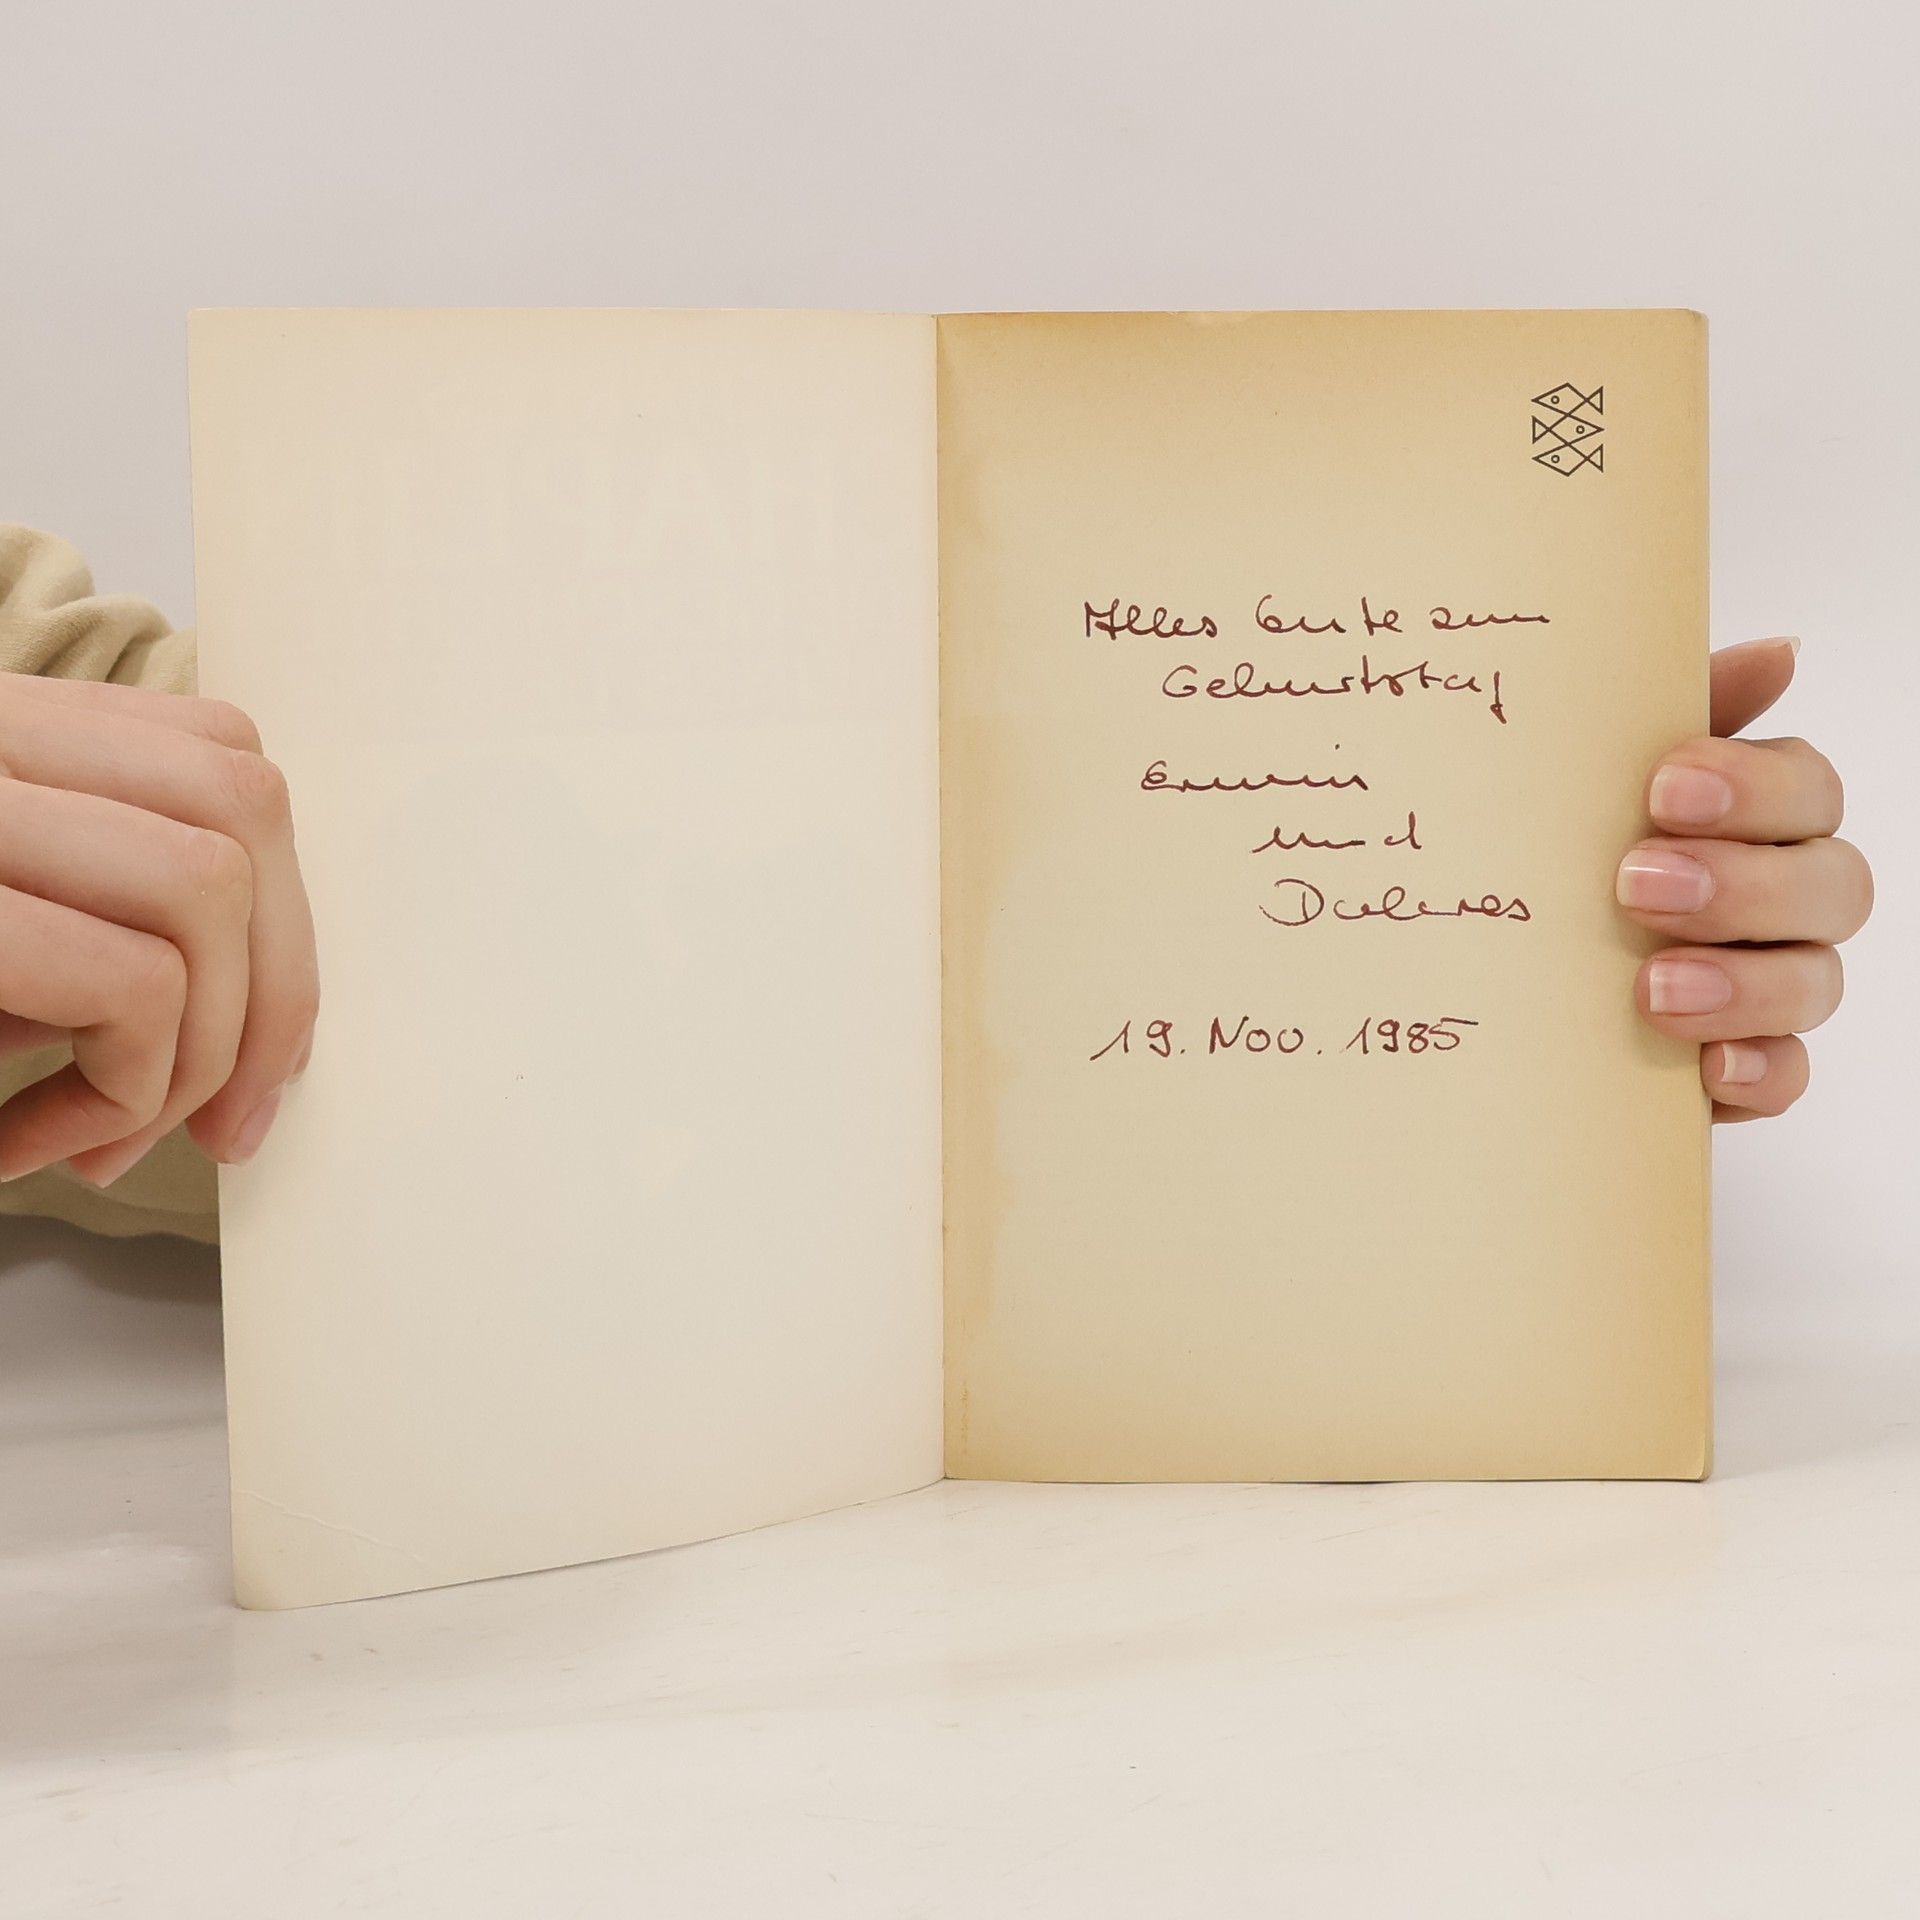 Alles Gute zum
Geburtstag
Erwin
und
Dolores
19. Nov. 1985